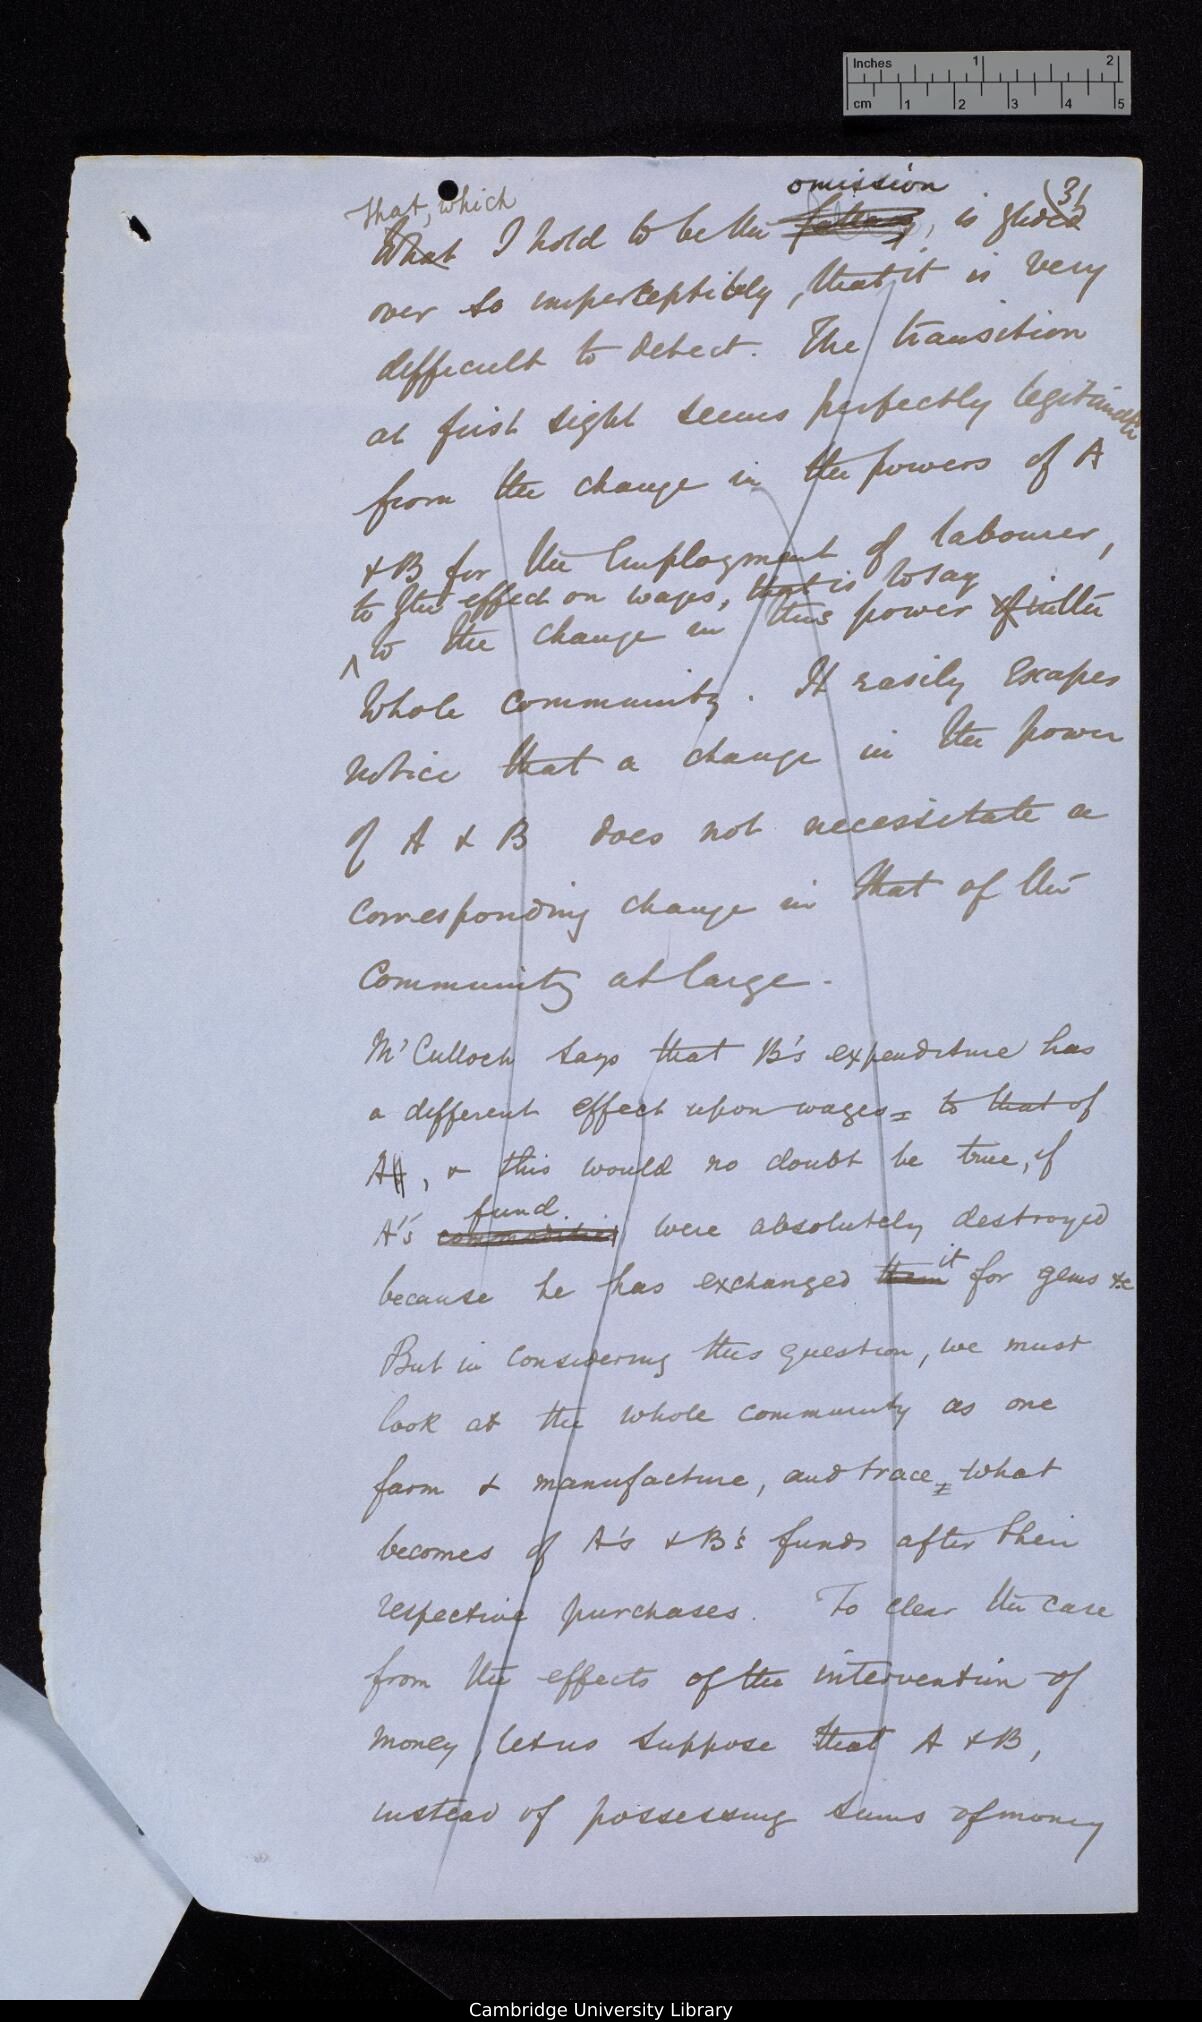 Inches 1 2
cm 1 2 3 4 5
omission
(31
that, which
What I hold to be the fallacy, is glided
over so imperceptibly, that it is very
difficult to detect. The transition
at first sight seems perfectly legitimate
from the change in the powers of A
& B for the employment of labourer,
to the effect on wages, that is to say
to the change in this power of in the
whole community. It easily escapes
notice that a change in the power
of A & B does not necessitate a
corresponding change in that of the
community at large.
McCulloch says that B's expenditure has
a different effect upon wages to that of
A, & this would no doubt be true, if
fund
A's commodities were absolutely destroyed
it
because he has exchanged them for gems &c
But in considering this question, we must
look at the whole community as one
farm & manufacture, and trace what
becomes of A's & B's funds after their
respective purchases. To clear the case
from the effects of the intervention of
money, let us suppose that A & B,
instead of possessing sums of money
Cambridge University Library